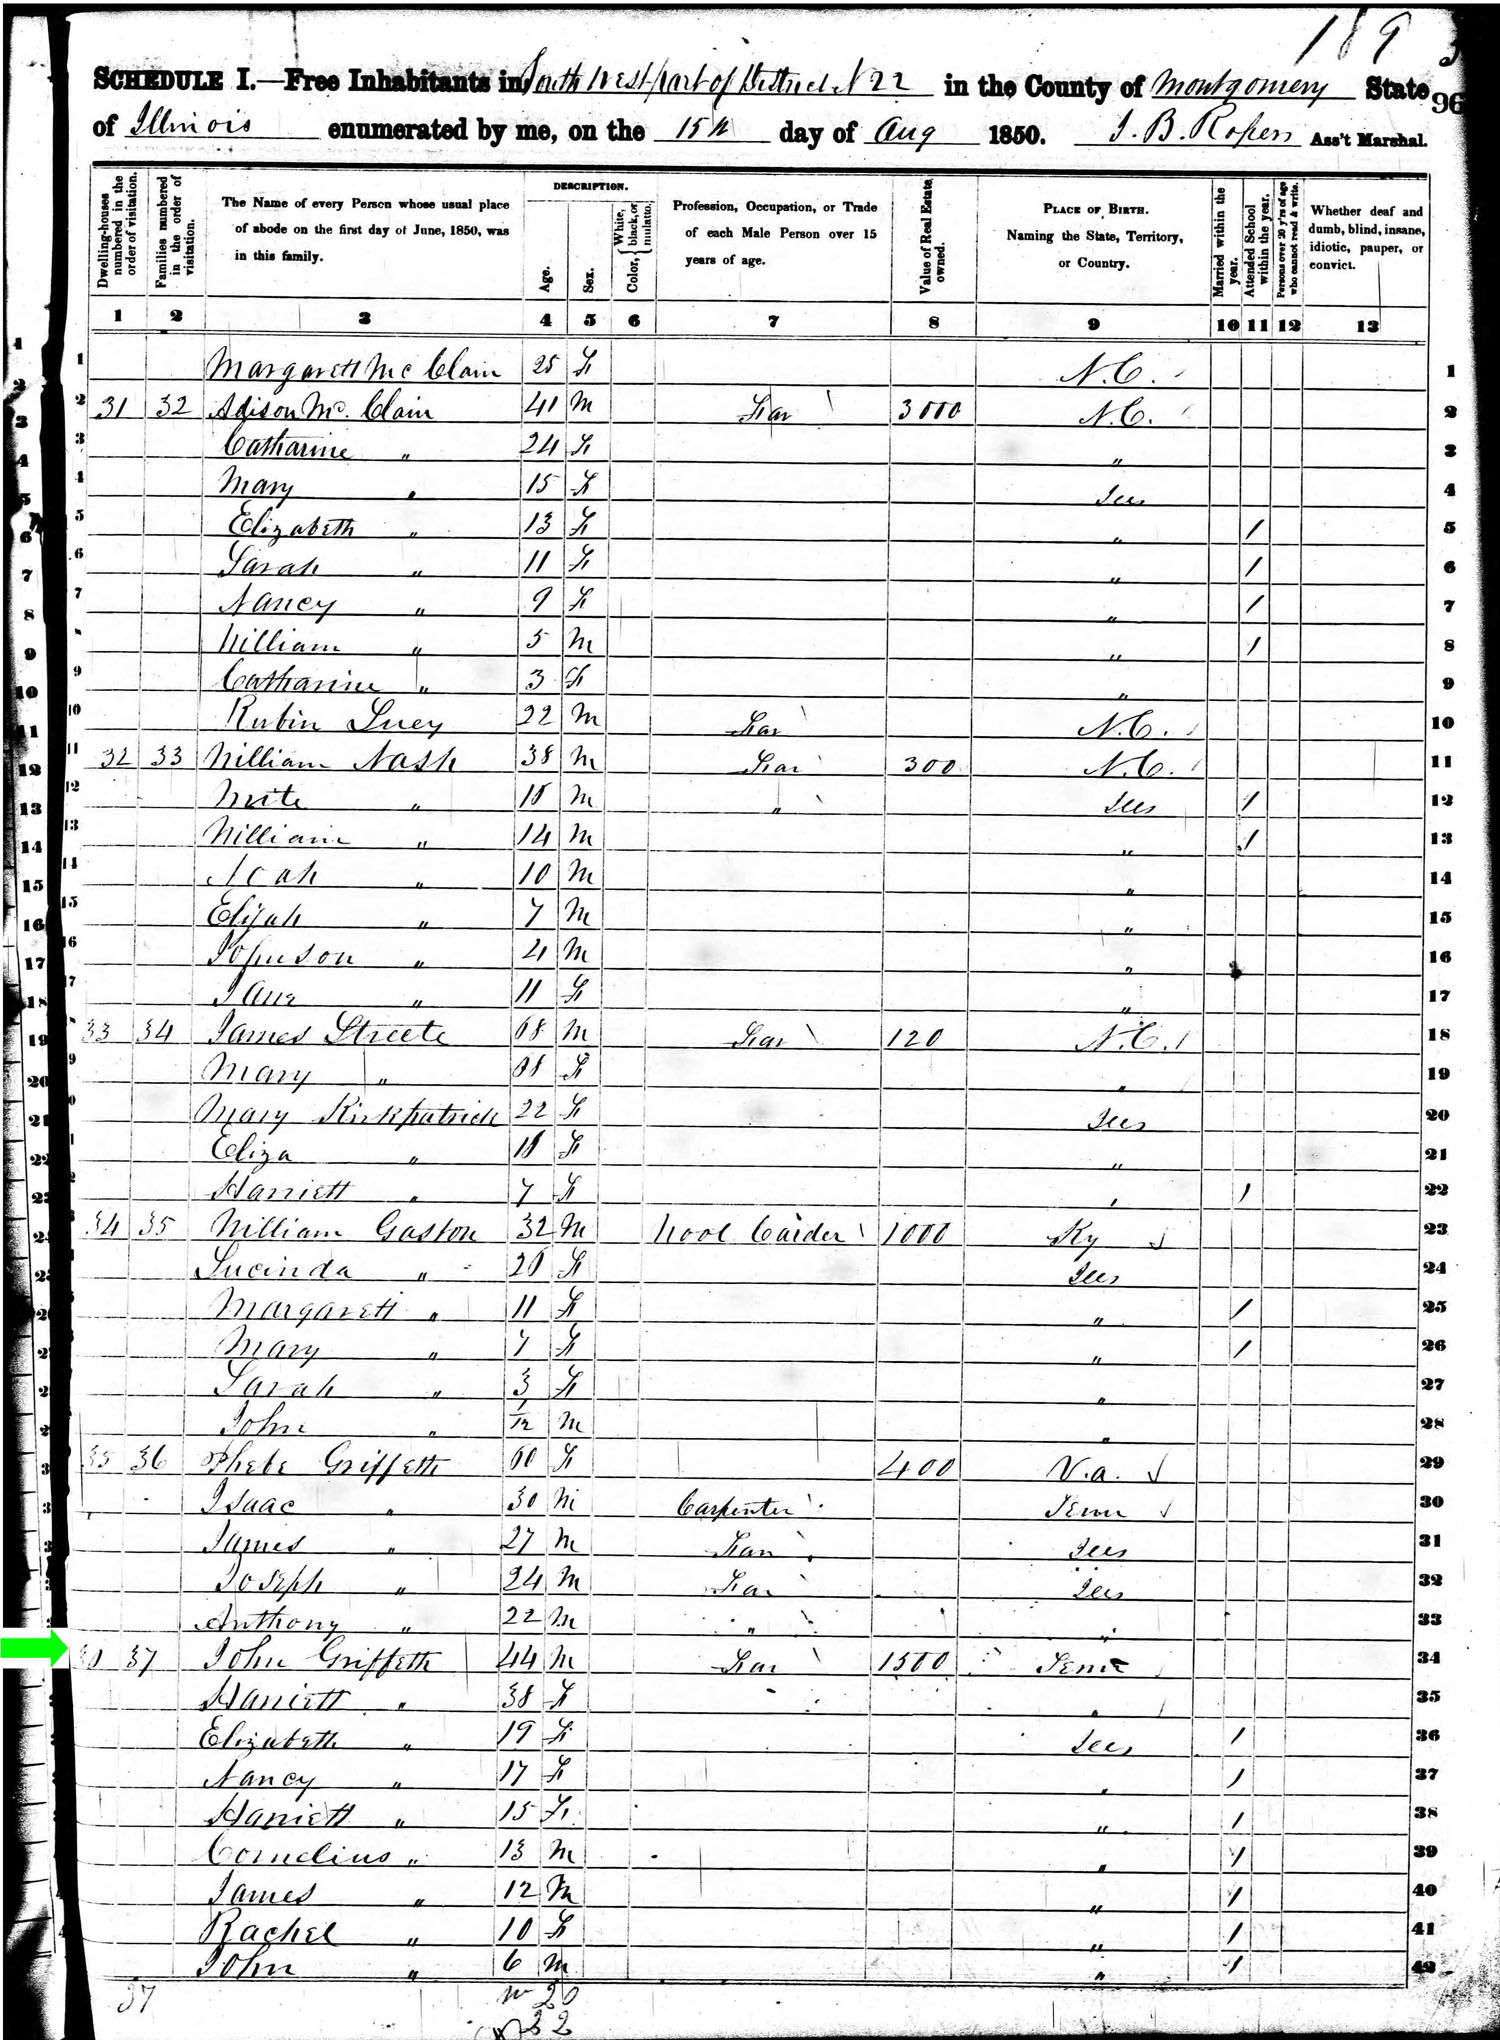 189
96
SCHEDULE I.—Free Inhabitants in South West part of District N 22 in the County of Montgomery State
of Illinois enumerated by me, on the 15th day of Aug 1850. Ass't Marshal.
Dwelling-houses numbered in the order of visitation.
Families numbered in the order of visitation.
The Name of every Person whose usual place of abode on the first day of June, 1850, was in this family.
DESCRIPTION.
Age.
Sex.
Color, { White, black, or mulatto.
Profession, Occupation, or Trade of each Male Person over 15 years of age.
Value of Real Estate owned.
PLACE OF BIRTH. Naming the State, Territory, or Country.
Married within the year.
Attended School within the year.
Persons over 20 y'rs of age who cannot read & write.
Whether deaf and dumb, blind, insane, idiotic, pauper, or convict.
1 2 3 4 5 6 7 8 9 10 11 12 13
1 Margarett Mc Clain 25 F N.C. 1
2 31 32 Adison Mc. Clain 41 M Far 3000 N.C. 2
3 Catharine " 24 F " 3
4 Mary " 15 F Ills 4
5 Elizabeth " 13 F " / 5
6 Sarah " 11 F " / 6
7 Nancy " 9 F " / 7
8 William " 5 M " / 8
9 Catharine " 3 F " 9
10 Rubin Lucy 22 M Far N.C. 10
11 32 33 William Nash 38 M Far 300 N.C. 11
12 " 18 M " Ills / 12
13 William " 14 M " / 13
14 Noah " 10 M " 14
15 Elijah " 7 M " 15
16 Johnson " 4 M " 16
17 Jane " 11 F " 17
33 34 James Streete 68 M Far 120 N.C. 18
Mary " 68 F " 19
Mary Kirkpatrick 22 F Ills 20
Eliza " 18 F " 21
Harriett " 7 F " / 22
34 35 William Gaston 32 M Wool Carder 1000 Ky 23
Lucinda " 28 F Ills 24
Margarett " 11 F " / 25
Mary " 7 F " / 26
Sarah " 3 F " 27
John " 1/12 M " 28
35 36 Phebe Griffeth 60 F 400 V.a. 29
Isaac " 30 M Carpenter Tenn 30
James " 27 M Far Ills 31
Joseph " 24 M Far Ills 32
Anthony " 22 M " " 33
36 37 John Griffeth 44 M Far 1500 Tenn 34
Harriett " 38 F " 35
Elizabeth " 19 F Ills / 36
Nancy " 17 F " / 37
Harriett " 15 F " / 38
Cornelius " 13 M " / 39
James " 12 M " / 40
Rachel " 10 F " / 41
John " 6 M " / 42
37
20
22